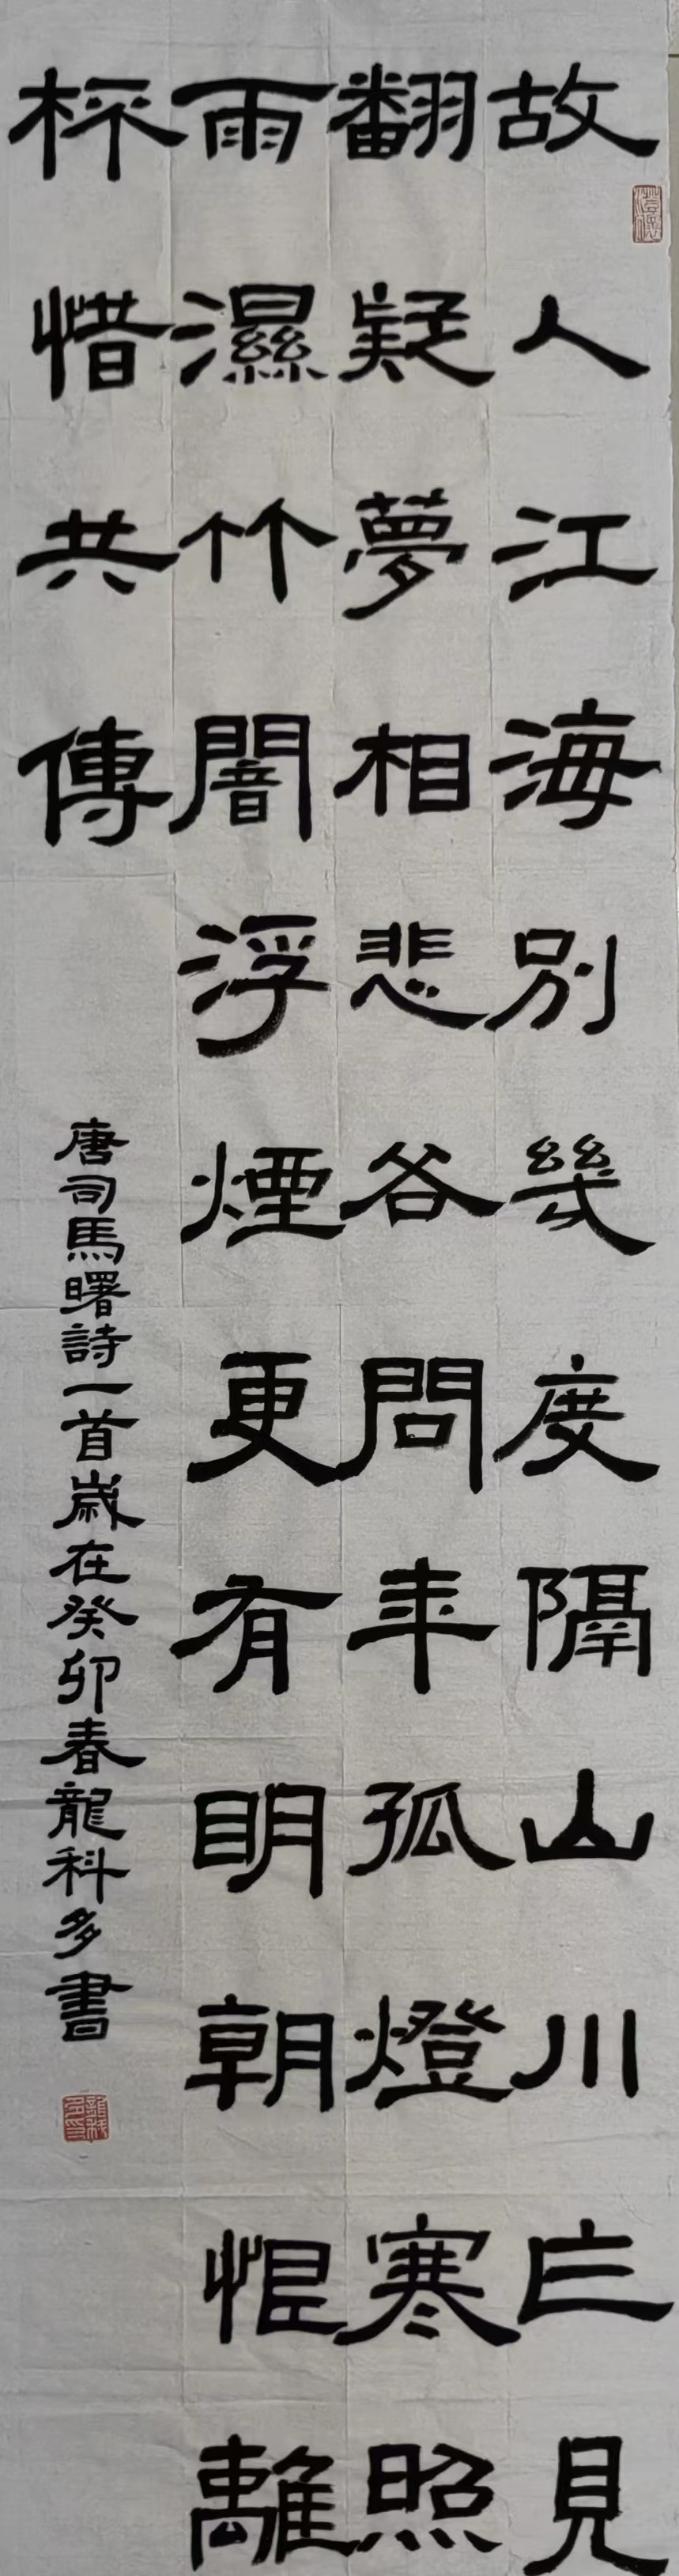 故人江海別幾度隔山川乍見
翻疑夢相悲各問年孤燈寒照
雨濕竹闇浮煙更有明朝恨離
杯惜共傳
唐司馬曙詩一首歲在癸卯春龍科多書